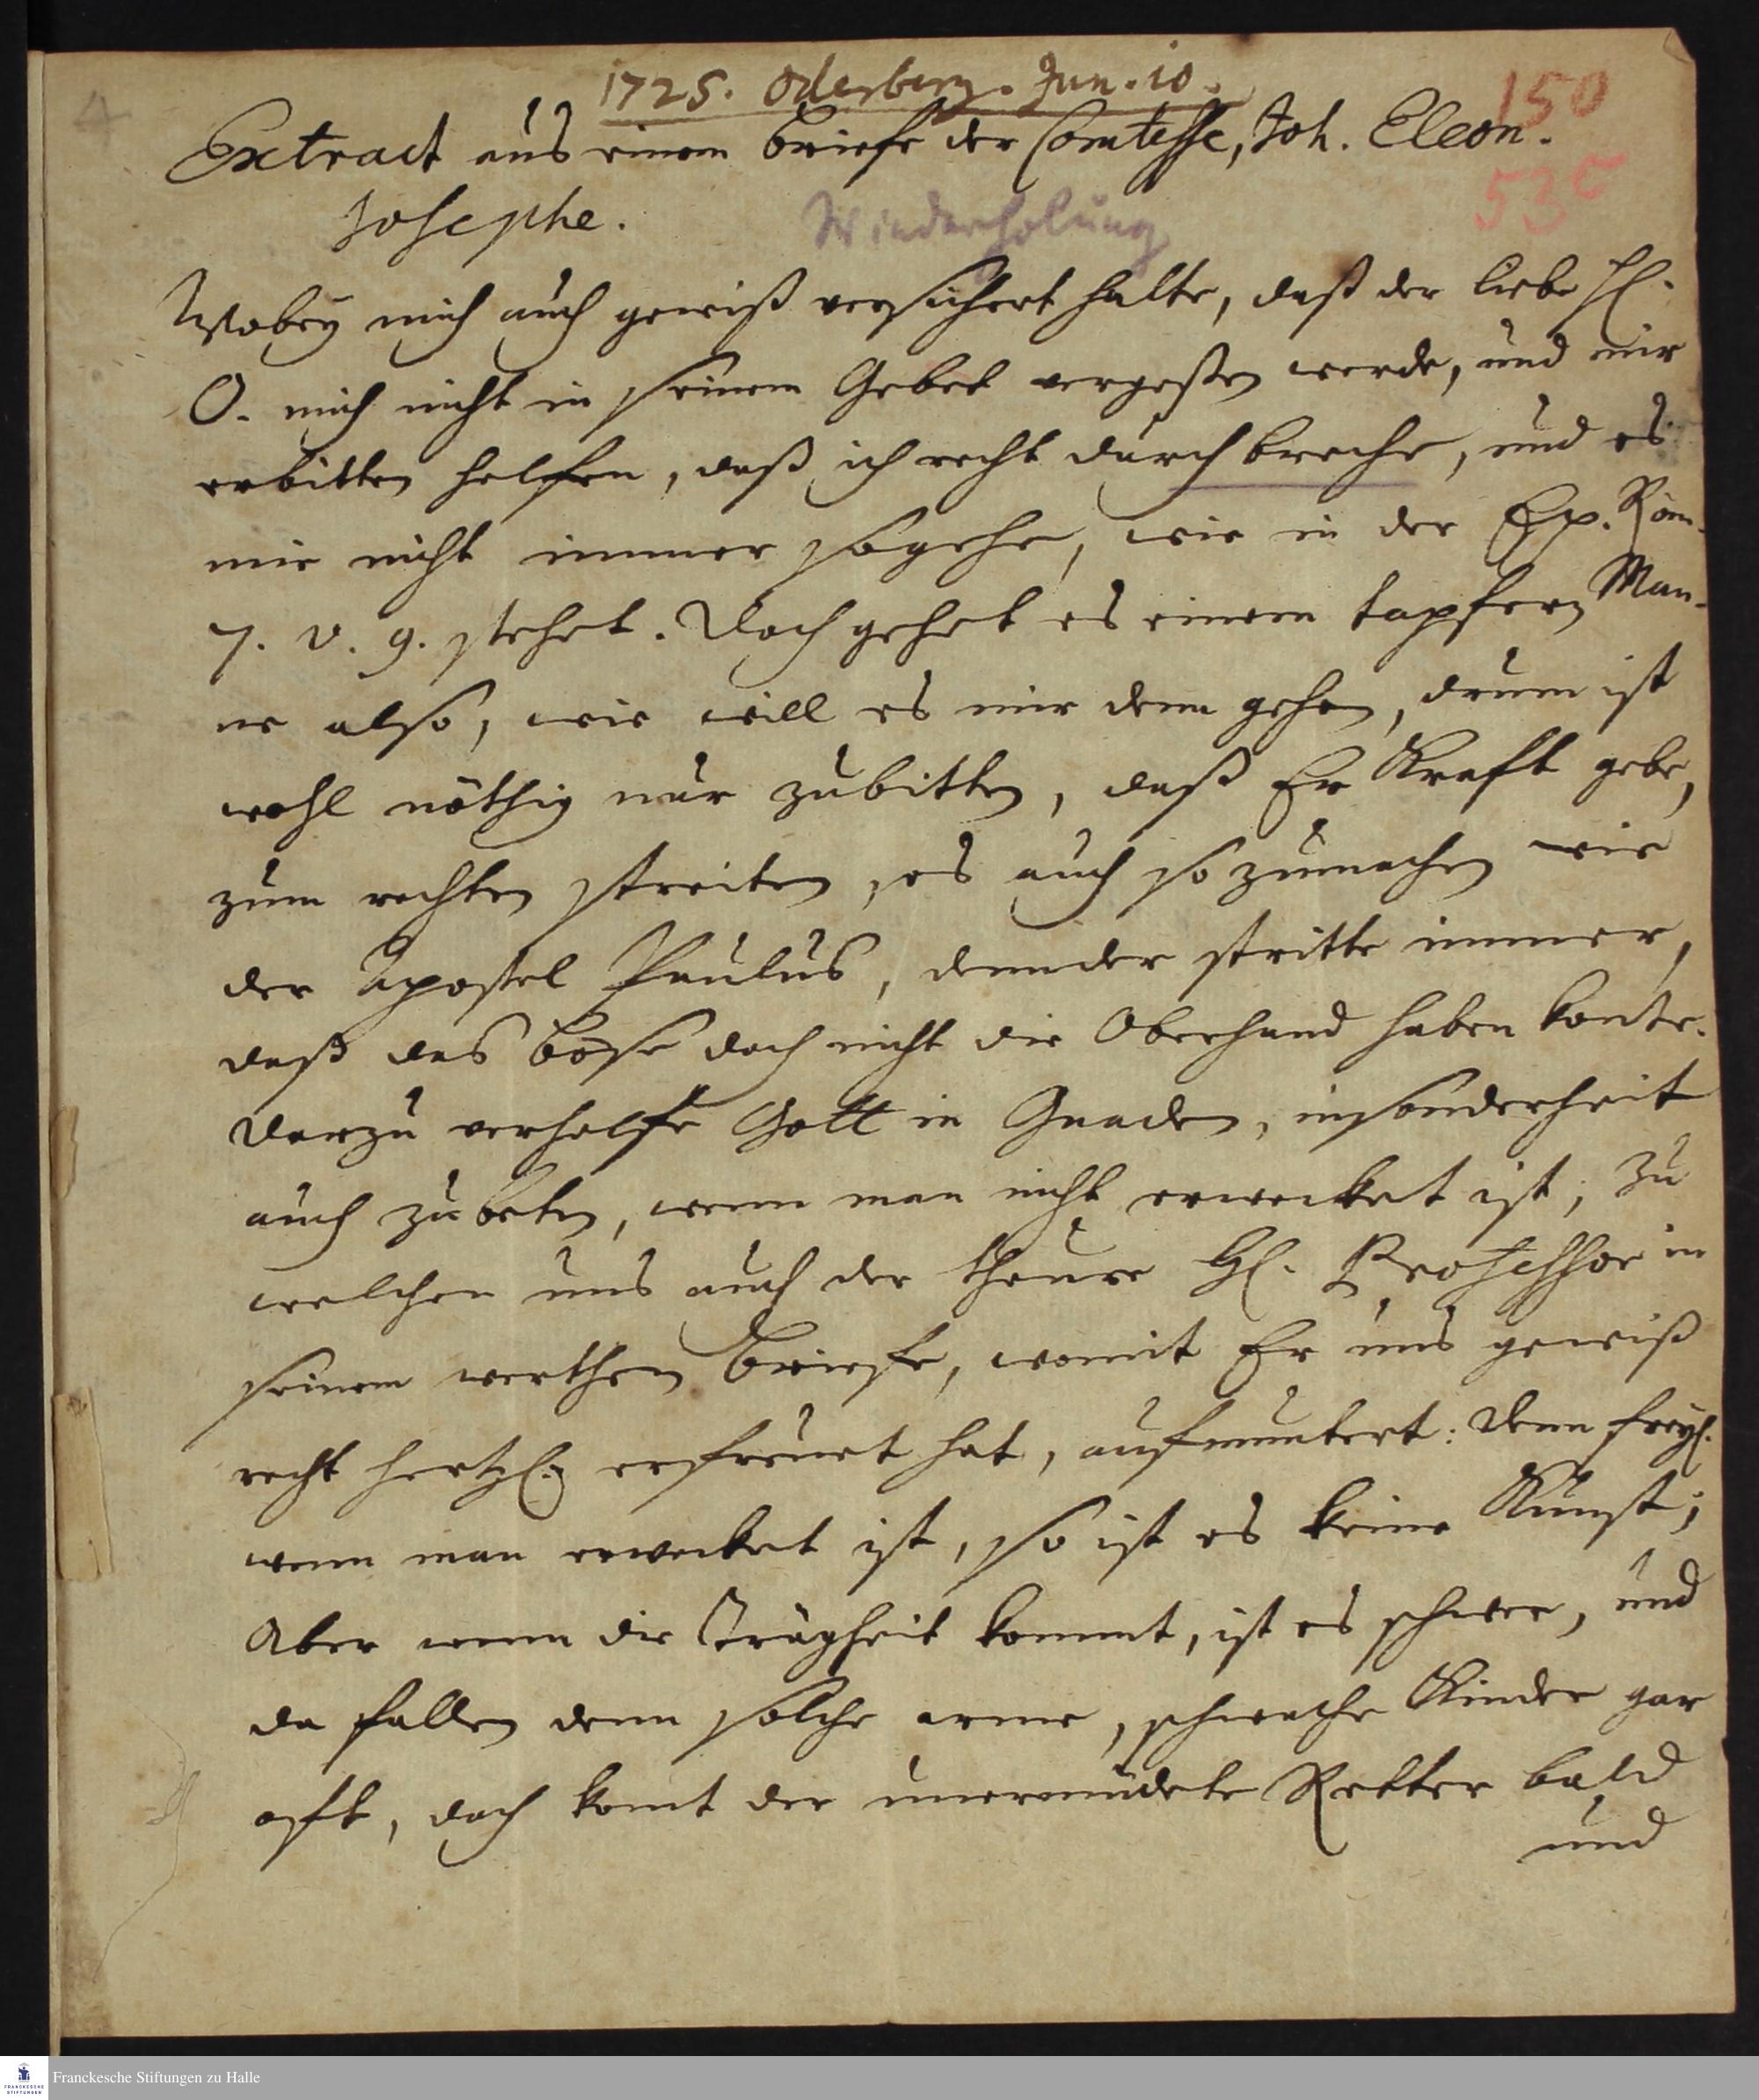 4
1725. Oderberg. Jun. 10.
150
Extract aus einem briefe der Comtesse, Joh. Eleon.
Josephe.
Wiederholung
53c
Wobey mich auch gewiß versichert halte, daß der liebe H.
O. mich nicht in seinem Gebet vergeßen werde, und mir
erbitten helfen, daß ich recht durchbreche, und es
mir nicht immer so gehe, wie in der Ep. Röm.
7. v. 9. stehet. Doch gehet es einem tapfern Man-
ne also, wie will es mir denn gehen, drum ist
wohl nöthig nur zubitten, daß Er Krafft gebe,
zum rechten streiten, es auch so zumachen wie
der Apostel Paulus, denn der stritte immer,
daß das böse doch nicht die Oberhand haben konte.
Darzu verhelfe Gott in Gnaden, insonderheit
auch zu beten, wenn man nicht erwecket ist; zu
welchen uns auch der theure H. Professor in
seinem werthen briefe, womit Er uns gewiß
recht hertzl. erfreuet hat, aufmuntert: denn freyl.
wenn man erwecket ist, so ist es keine Kunst;
Aber wenn die Trägheit kommt, ist es schwer, und
da fallen denn solche arme, schwache Kinder gar
offt, doch komt der unermüdete Retter bald
und
Franckesche Stiftungen zu Halle
FRANCKESCHE
STIFTUNGEN